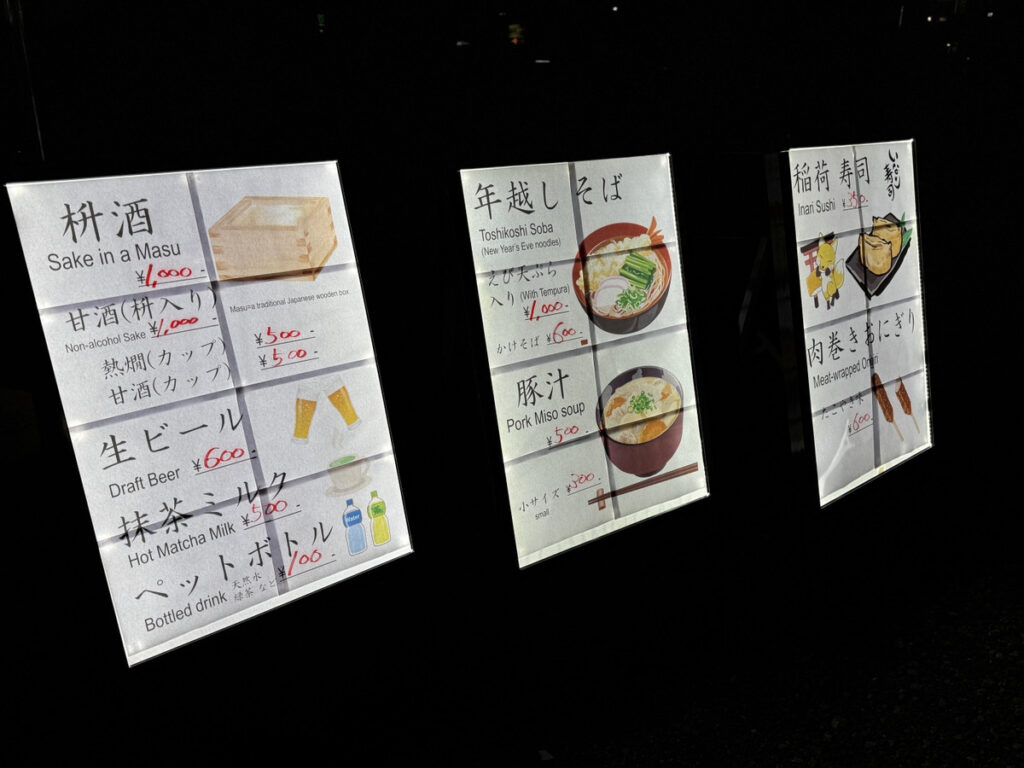 枡酒
Sake in a Masu
¥1,000-
甘酒(枡入り)
Masu=a traditional Japanese wooden box
Non-alcohol Sake ¥1,000-
熱燗(カップ) ¥500-
甘酒(カップ) ¥500-
生ビール
Draft Beer ¥600-
抹茶ミルク
Hot Matcha Milk ¥500-
Water
ペットボトル
Bottled drink 天然水 緑茶 など ¥100-
年越しそば
Toshikoshi Soba
(New Year's Eve noodles)
えび天ぷら
入り (With Tempura)
¥1,000-
かけそば ¥600-
豚汁
Pork Miso soup
¥500-
小サイズ ¥300-
small
稲荷寿司
いなり寿司
Inari Sushi ¥350-
肉巻きおにぎり
Meat-wrapped Onigiri
たこやき味
¥600-